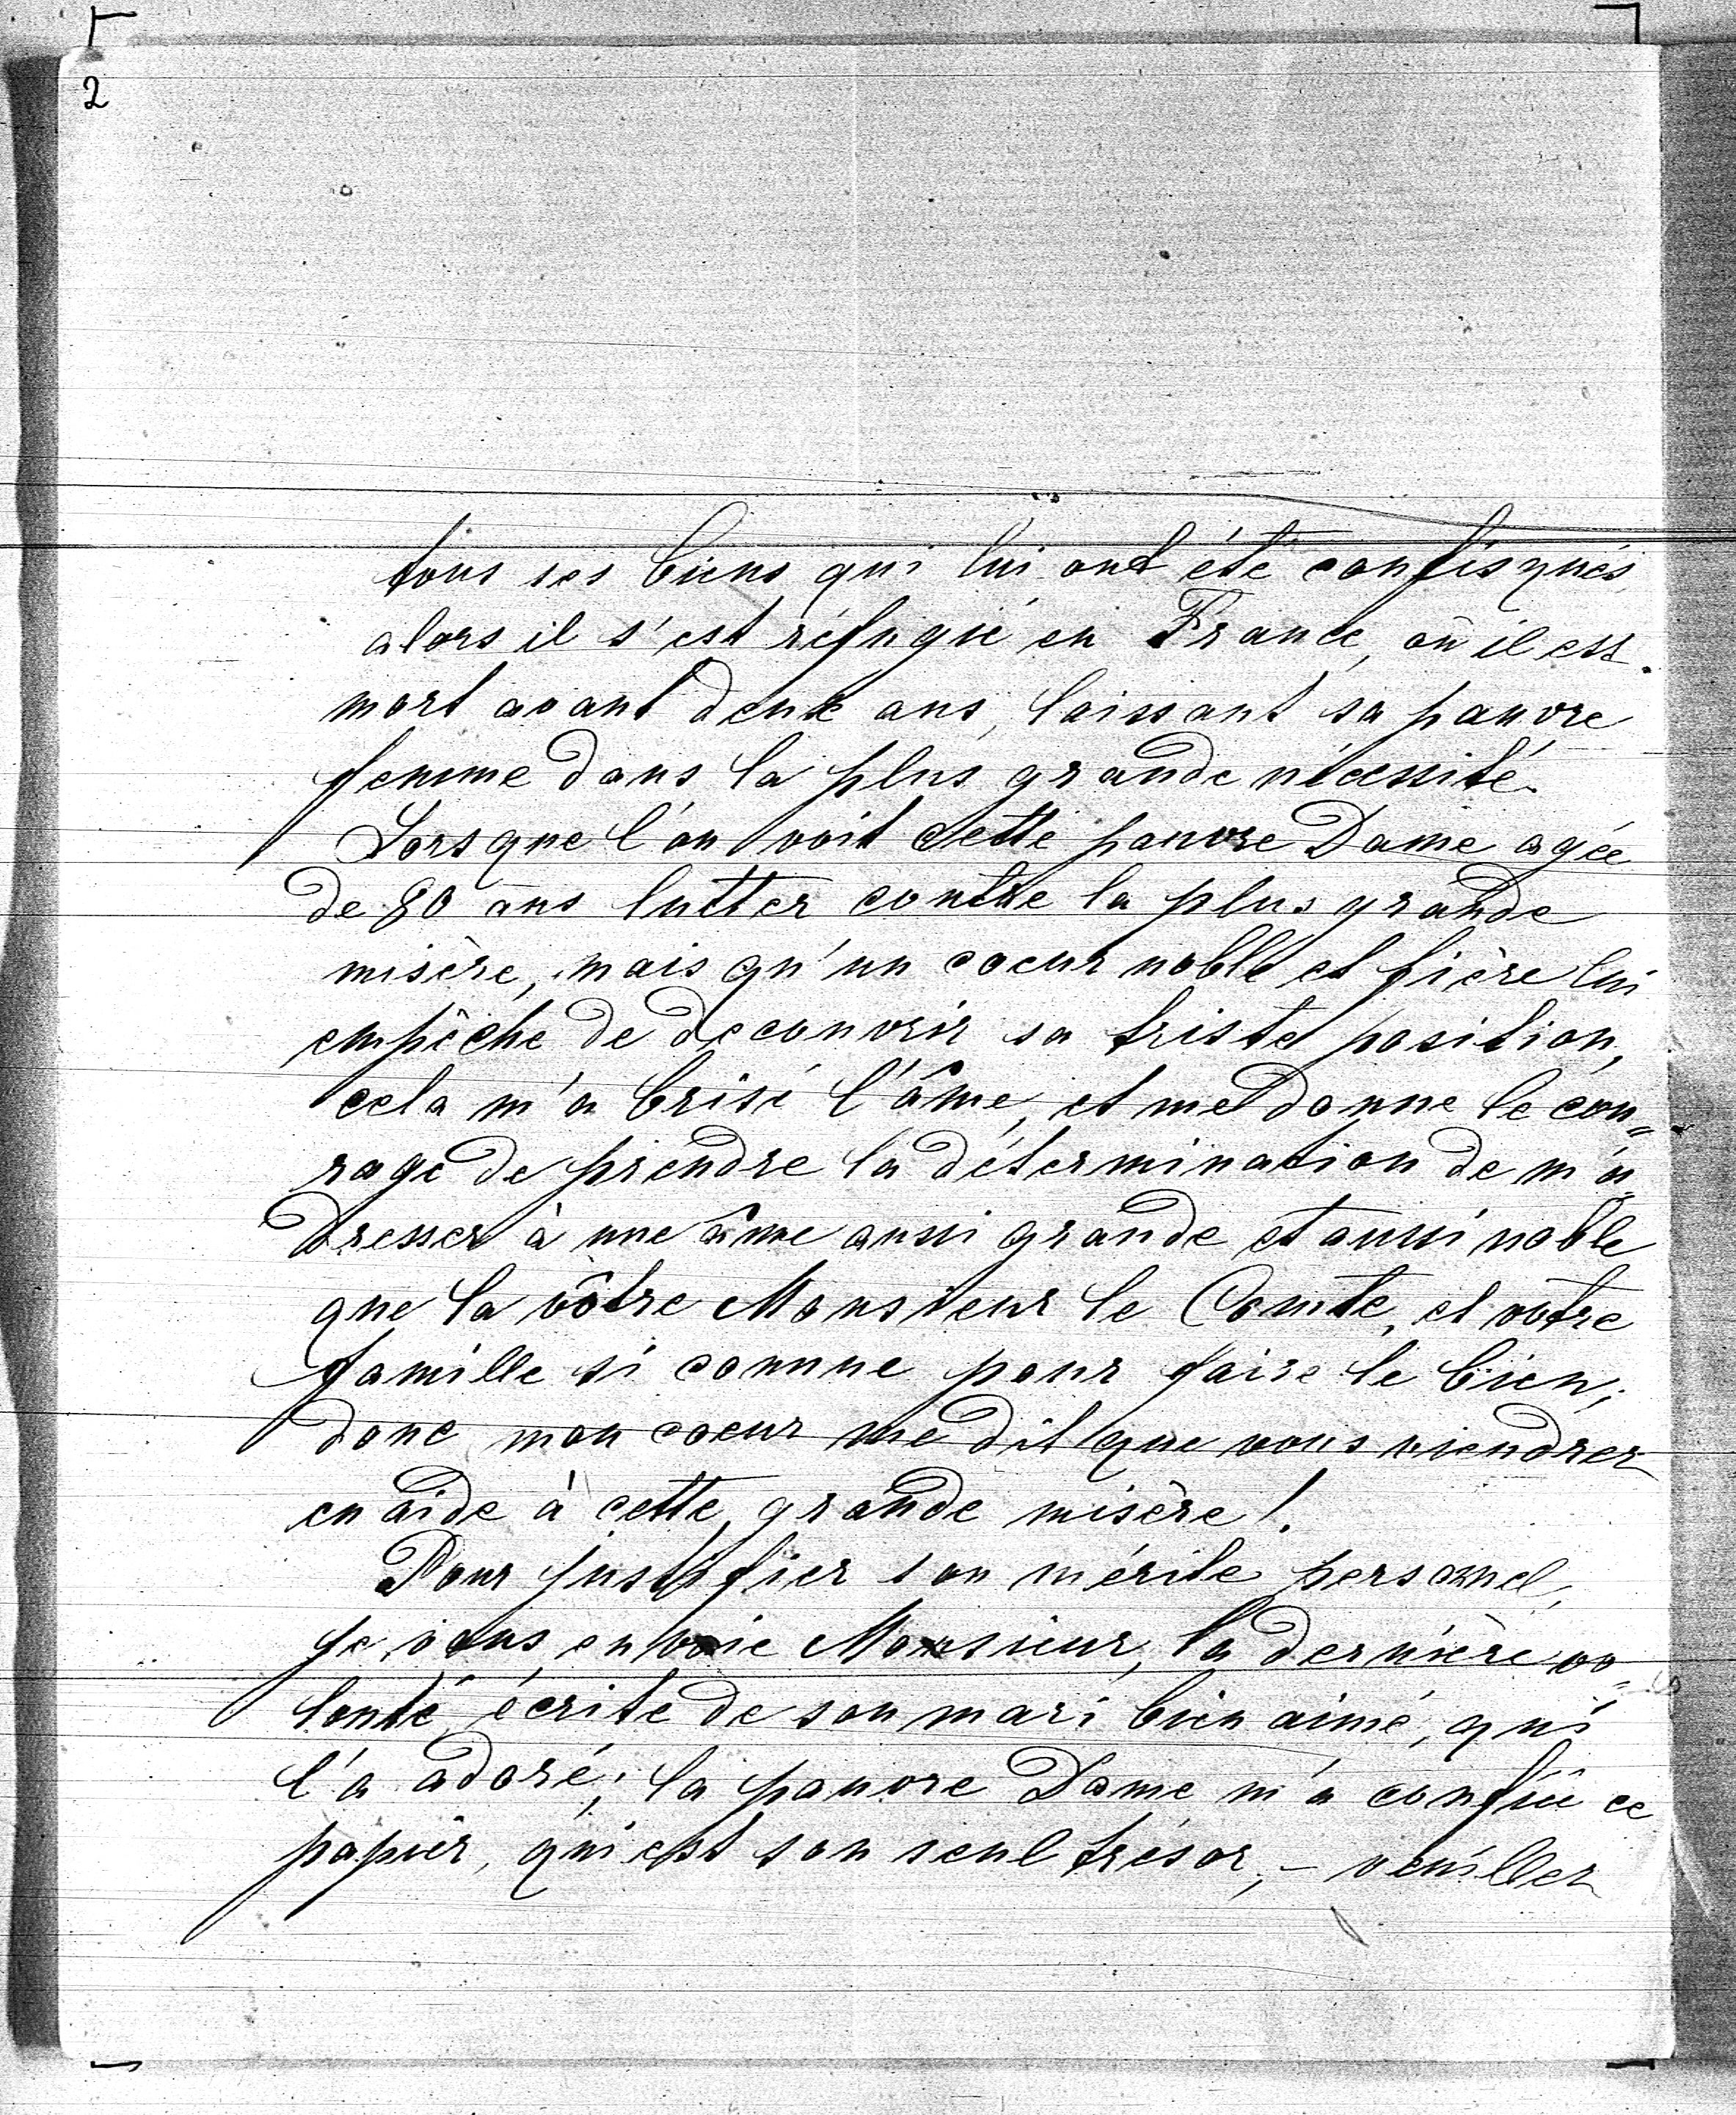 2
tous ses biens qui lui ont été confisqués
alors il s'est réfugié en France, où il est
mort avant deux ans, laissant sa pauvre
femme dans la plus grande nécessité.
Lorsque l'on voit cette pauvre Dame agée
de 80 ans lutter contre la plus grande
misère, mais qu'un coeur noble et fière lui
empêche de decouvrir sa triste position,
cela m'a brisé l'âme, et me donne le cou=
rage de prendre la détermination de m'a=
dresser à une âme aussi grande et aussi noble
que la vôtre Monsieur le Comte, et votre
famille si connue pour faire le bien;
donc mon coeur me dit que vous viendrez
en aide à cette grande misère!
Pour justifier son mérite personnel,
je vous envoie Monsieur, la dernière vo=
lonté écrite de son mari bien aimé, qui
l'a adoré; la pauvre Dame m'a confié ce
papier, qui est son seul trésor, – veuillez